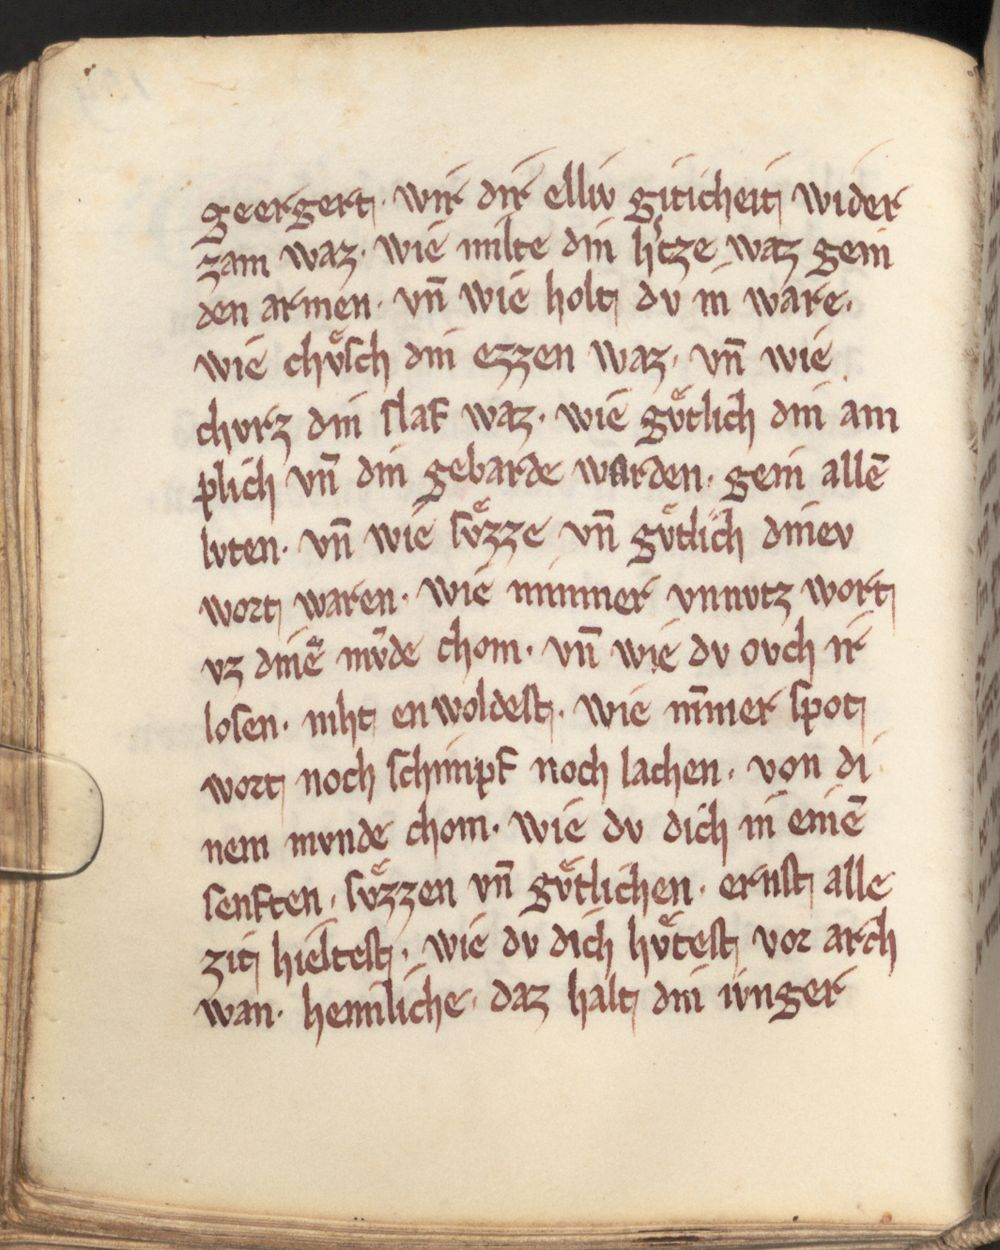 geergert · wir dir elliv giticheit wider
zam waz · wie milte din h'tze waz gein
den armen · vn̄ wie holt dv in ware ·
wie chvͤsch din ezzen waz · vn̄ wie
chvrz din slaf waz · wie gvͤtlich din ain
plich vn̄ din gebarde warden · gein allē
lvten · vn̄ wie svͤzze vn̄ gvͤtlich dinev
wort waren · wie nimmer vnnvtz wort
vz dinē mvͤde chom · vn̄ wie dv ovch ir
losen · niht en woldest · wie nīmer spot
wort noch schimpf noch lachen · von di
nem mvnde chom · wie dv dich in einē
senften · svͤzzen vn̄ gvͤtlichen · ernst alle
zit hieltest · wie dv dich hvͤtest vor arch
wan · heimliche · daz halt din ivnger